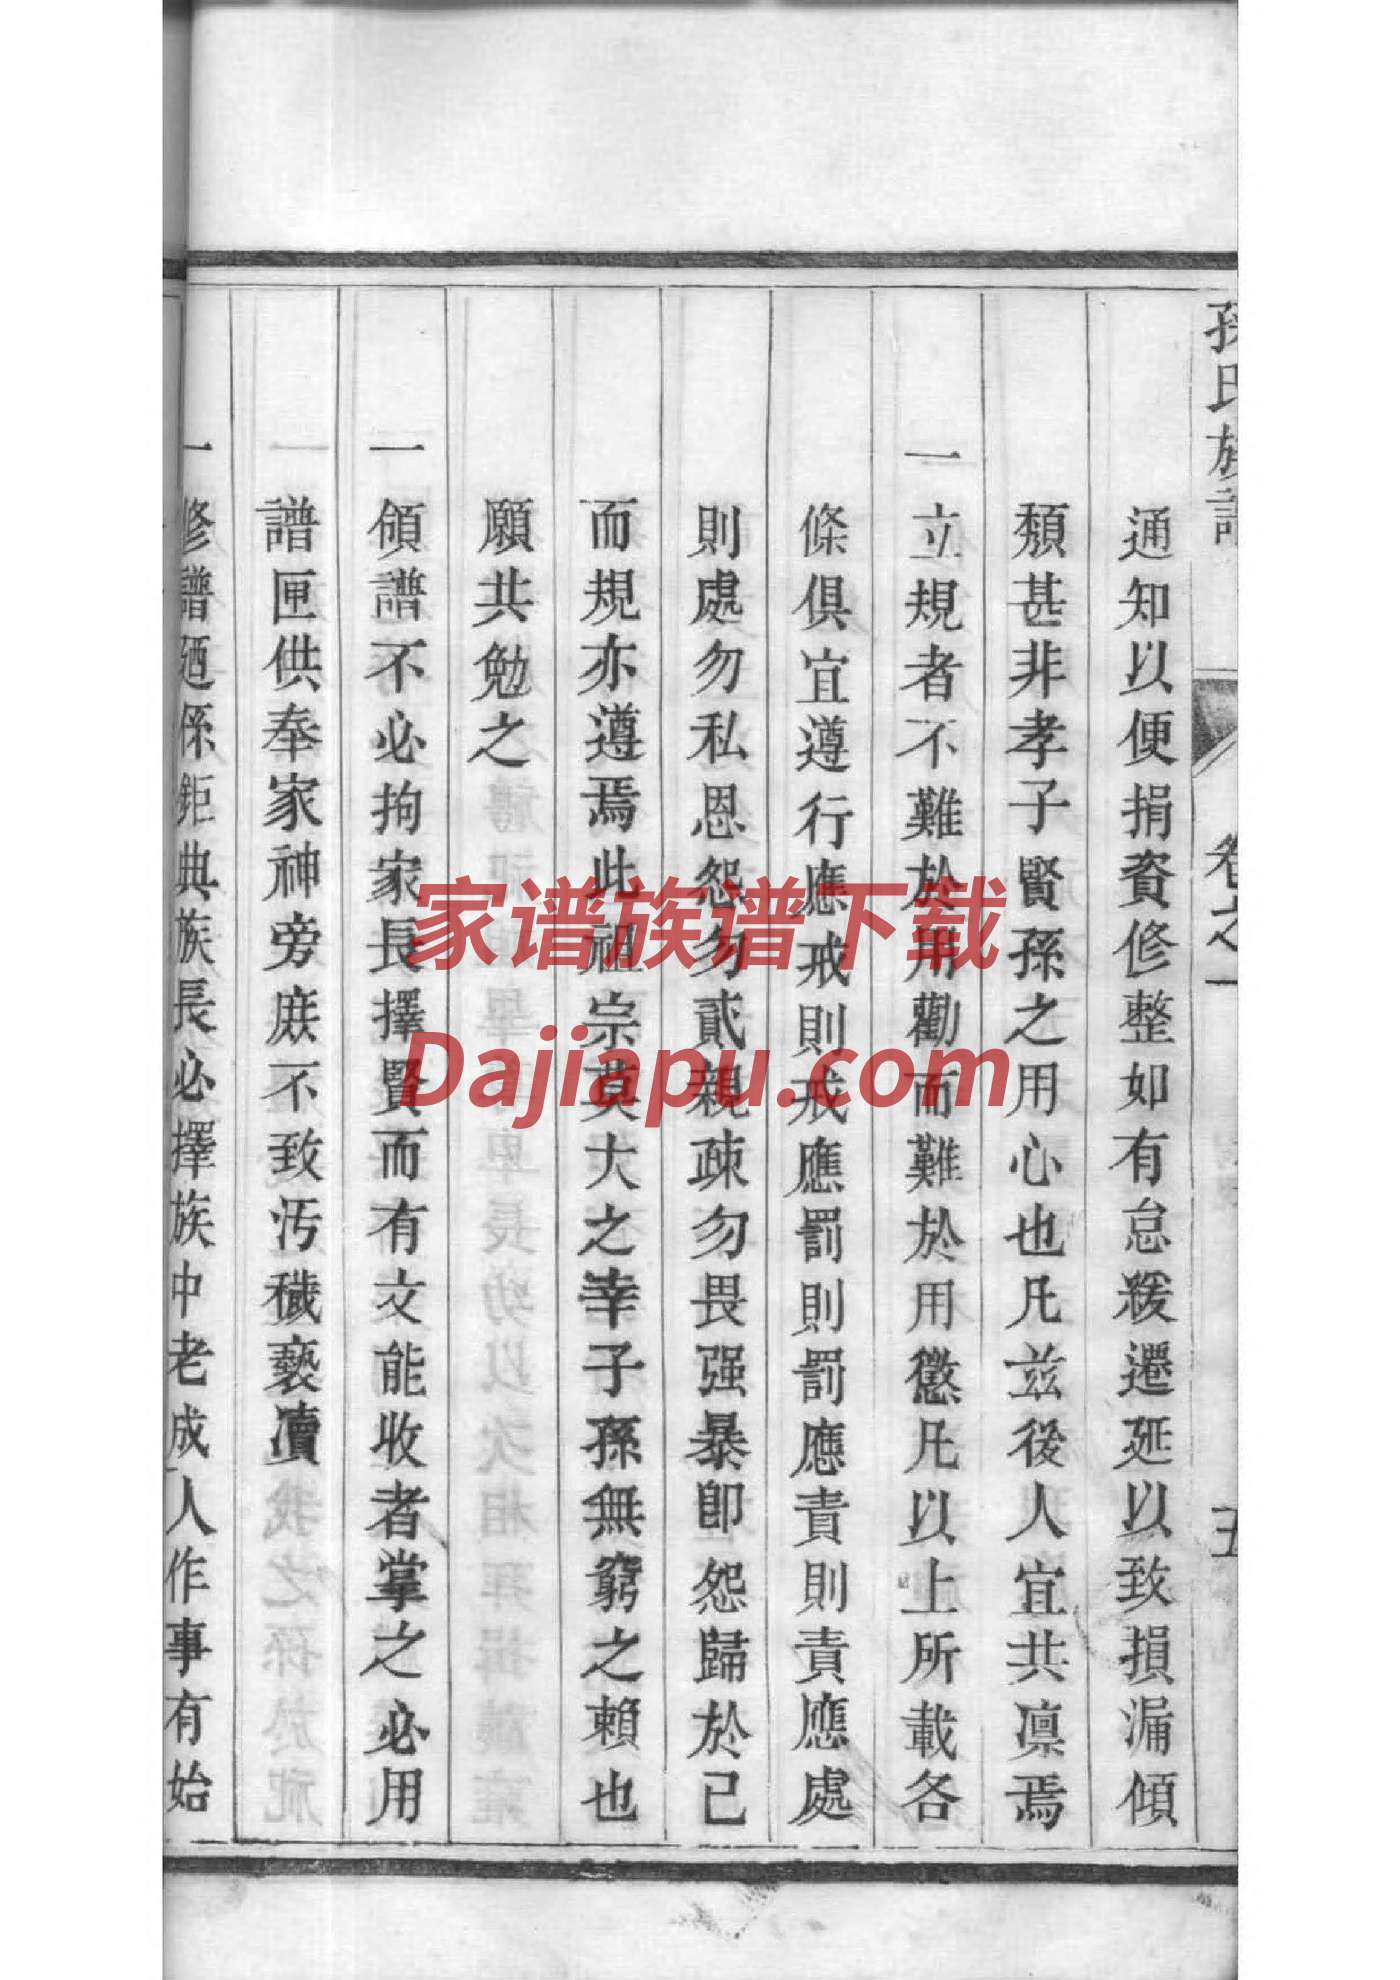 孫氏族譜
卷之一
五
通知以便捐資修整如有怠緩遷延以致損漏傾
頽甚非孝子賢孫之用心也凡兹後人宜共凛焉
一立規者不難於用勸而難於用懲凡以上所載各
條俱宜遵行應戒則戒應罰則罰應責則責應處
則處勿私恩怨勿貳親疎勿畏强暴卽怨歸於己
而規亦遵焉此祖宗莫大之幸子孫無窮之賴也
願共勉之
一領譜不必拘家長擇賢而有文能收者掌之必用
譜匣供奉家神旁庶不致汚穢褻瀆
一修譜廼係鉅典族長必擇族中老成人作事有始
家谱族谱下载
Dajiapu.com